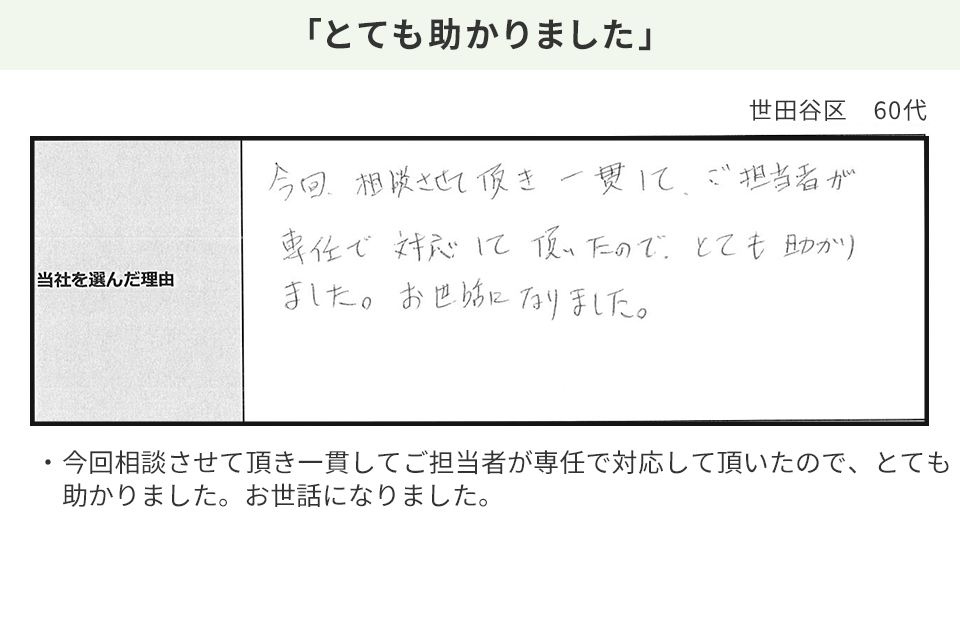 「とても助かりました」
世田谷区　60代
当社を選んだ理由
今回、相談させて頂き 一貫して、ご担当者が
専任で 対応して 頂いたので、とても 助かり
ました。お世話になりました。
・今回相談させて頂き一貫してご担当者が専任で対応して頂いたので、とても
助かりました。お世話になりました。